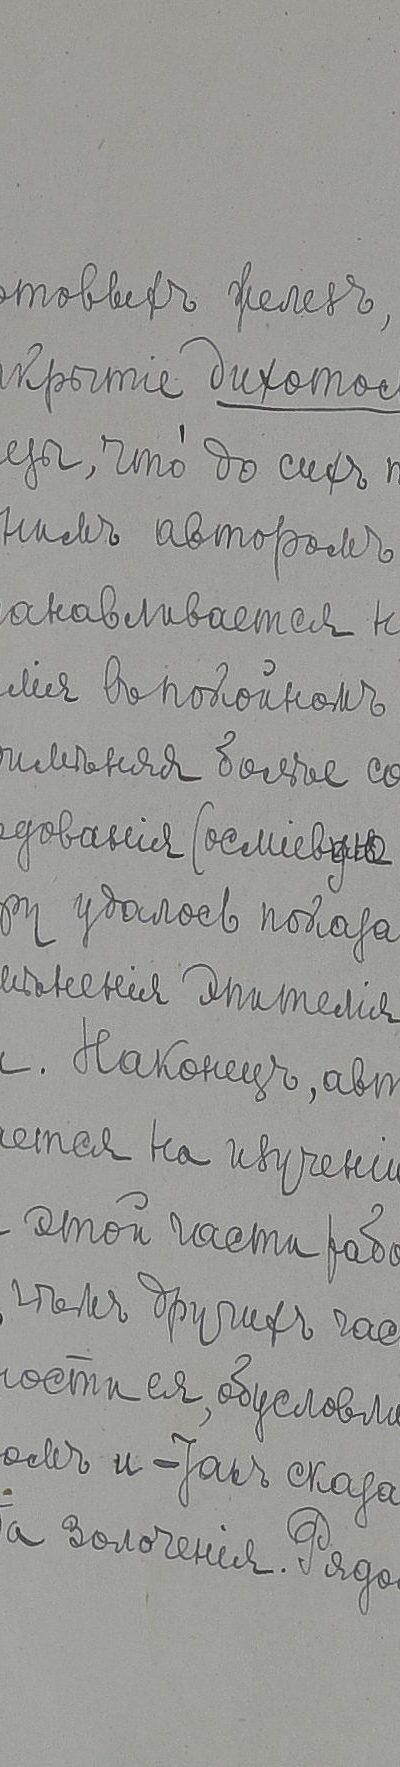 отовыхъ железъ,
акрытіе дихотом
езы, что́ до сихъ п
нимъ авторомъ
анавливается н
лія въ покойномъ
римѣняя болѣе со
едованія (осміевую
ру удалось показа
мѣненія эпителія
и. Наконецъ, авт
ается на изученіи
этой части рабо
, чѣмъ другихъ час
ности ея, обусловли
омъ и – такъ сказа
та золоченія. Рядо